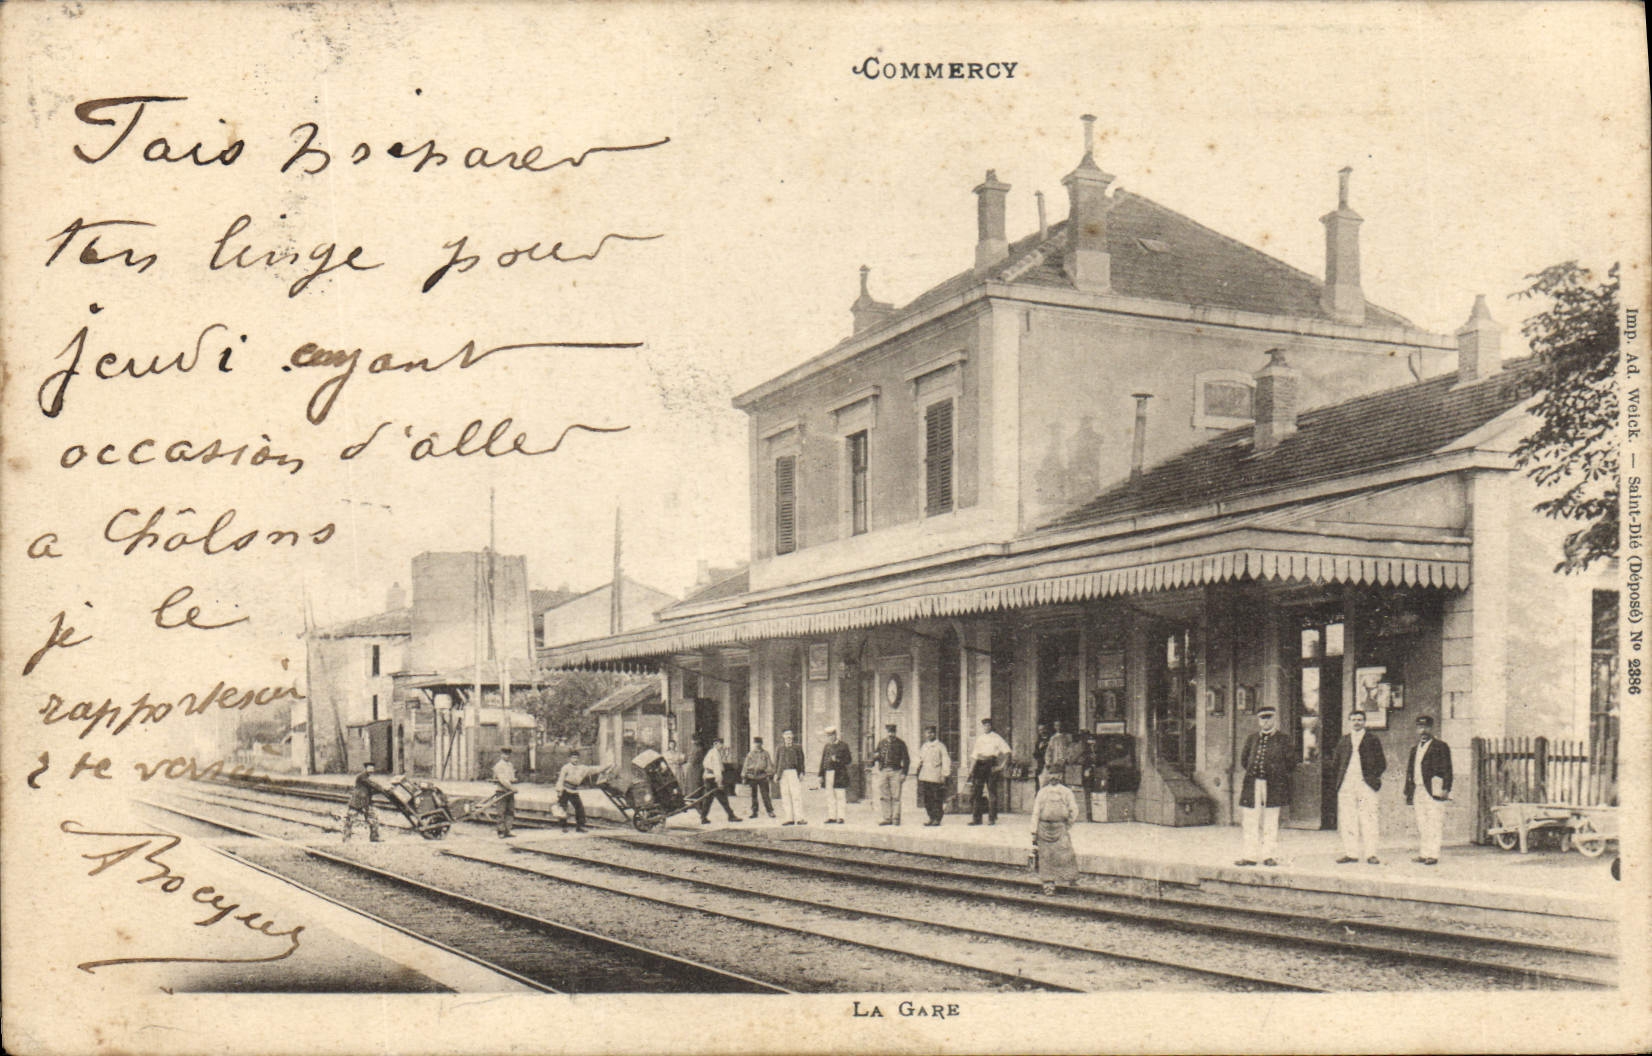 COMMERCY
Fais préparer
ton linge pour
jeudi ayant
occasion d'aller
a Châlons
je le
rapporterai
Bocquet
LA GARE
Imp. Ad. Weick. — Saint-Dié (Déposé) Nº 2386